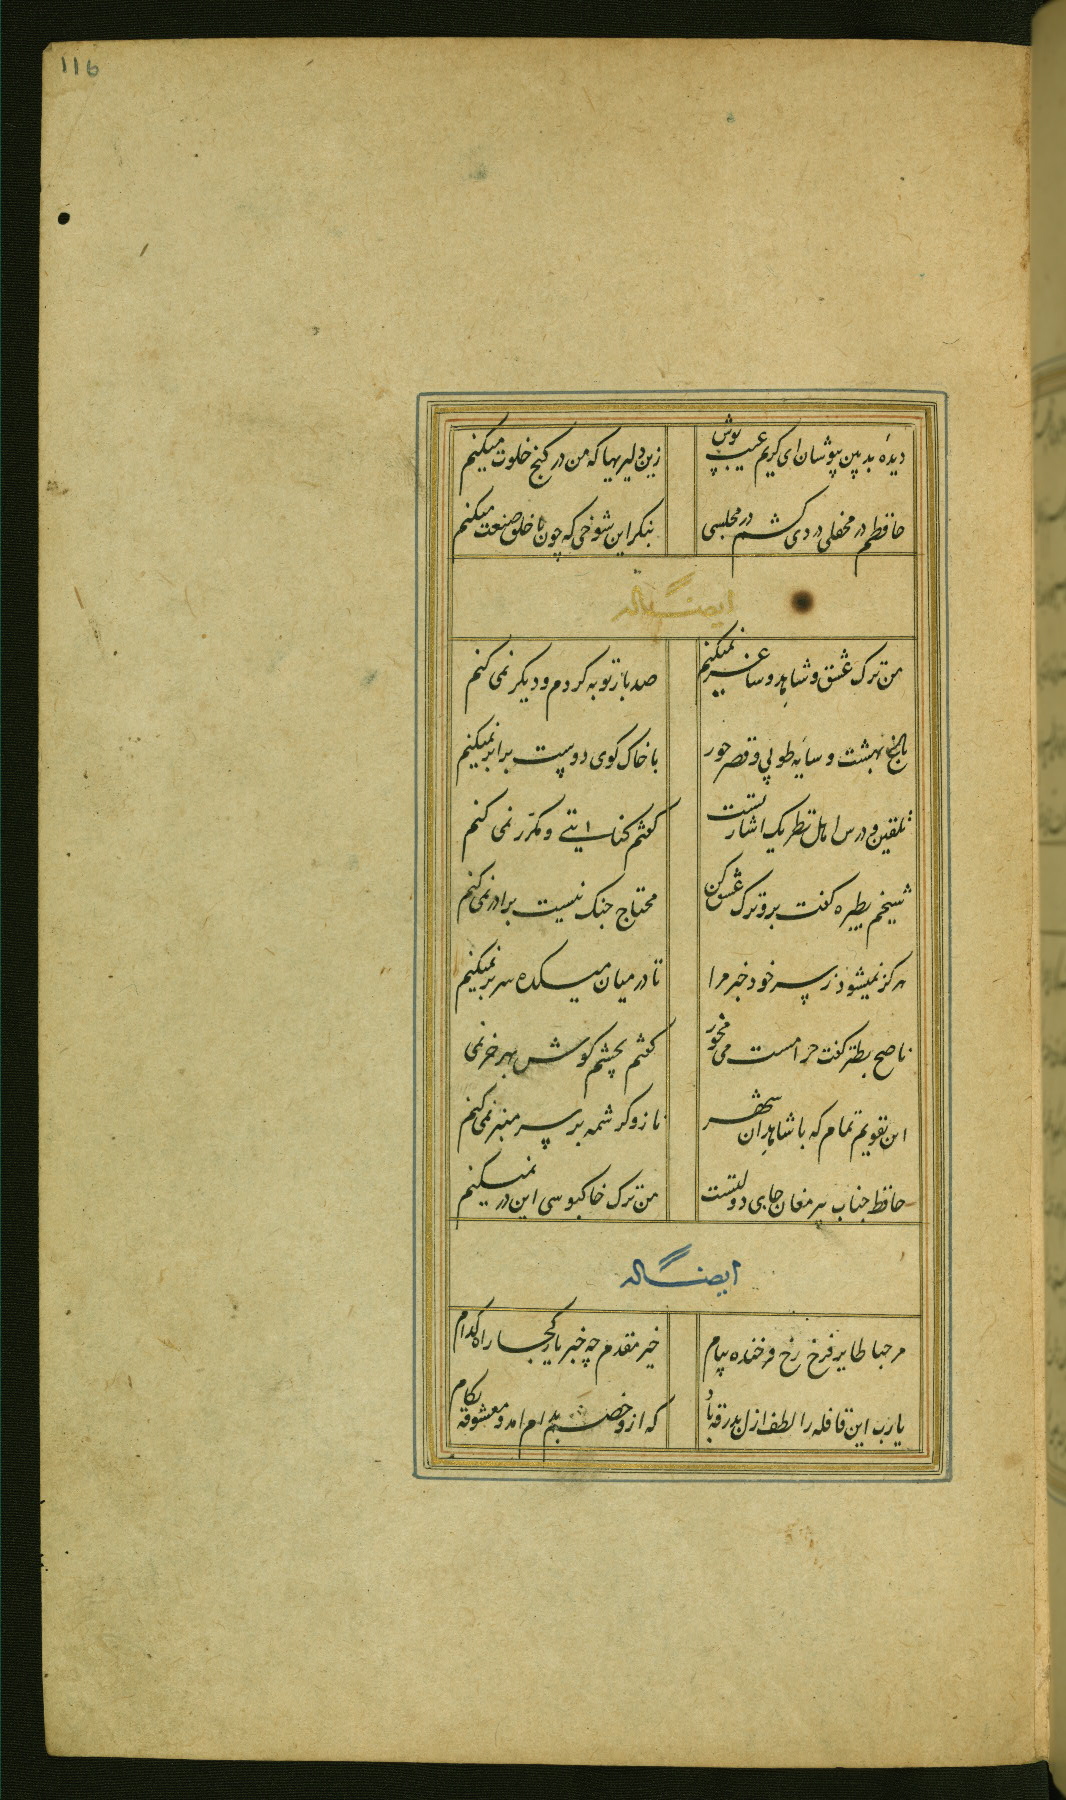 116
دیدهٔ بدبین بپوشان ای کریم عیب پوش زین دلیریها که من در کنج خلوت میکنم
حافظم در محفلی دردی کشم در مجلسی بنگر این شوخی که چون با خلق صنعت میکنم
ایضاً له
من ترک عشق و شاهد و ساغر نمیکنم صد بار توبه کردم و دیگر نمی کنم
باغ بهشت و سایه طوبی و قصر حور با خاک کوی دوست برابر نمیکنم
تلقین و درس اهل نظر یک اشارتست گفتم کنایتی و مکرر نمی کنم
شیخم بطیره گفت برو ترک عشق کن محتاج جنگ نیست برادر نمی کنم
هرگز نمیشود ز سر خود خبر مرا تا در میان میکده سر بر نمیکنم
ناصح بطنز گفت حرامست می مخور گفتم بچشم گوش بهر خر نمی
این تقویم تمام که با شاهدان شهر ناز و کرشمه بر سر منبر نمی کنم
حافظ جناب پیر مغان جای دولتست من ترک خاکبوسی این در نمیکنم
ایضاً له
مرحبا طایر فرخ رخ فرخنده پیام خیر مقدم چه خبر یار کجا راه کدام
یارب این قافله را لطف ازل بدرقه باد که ازو خصم بدام امد و معشوقه بکام